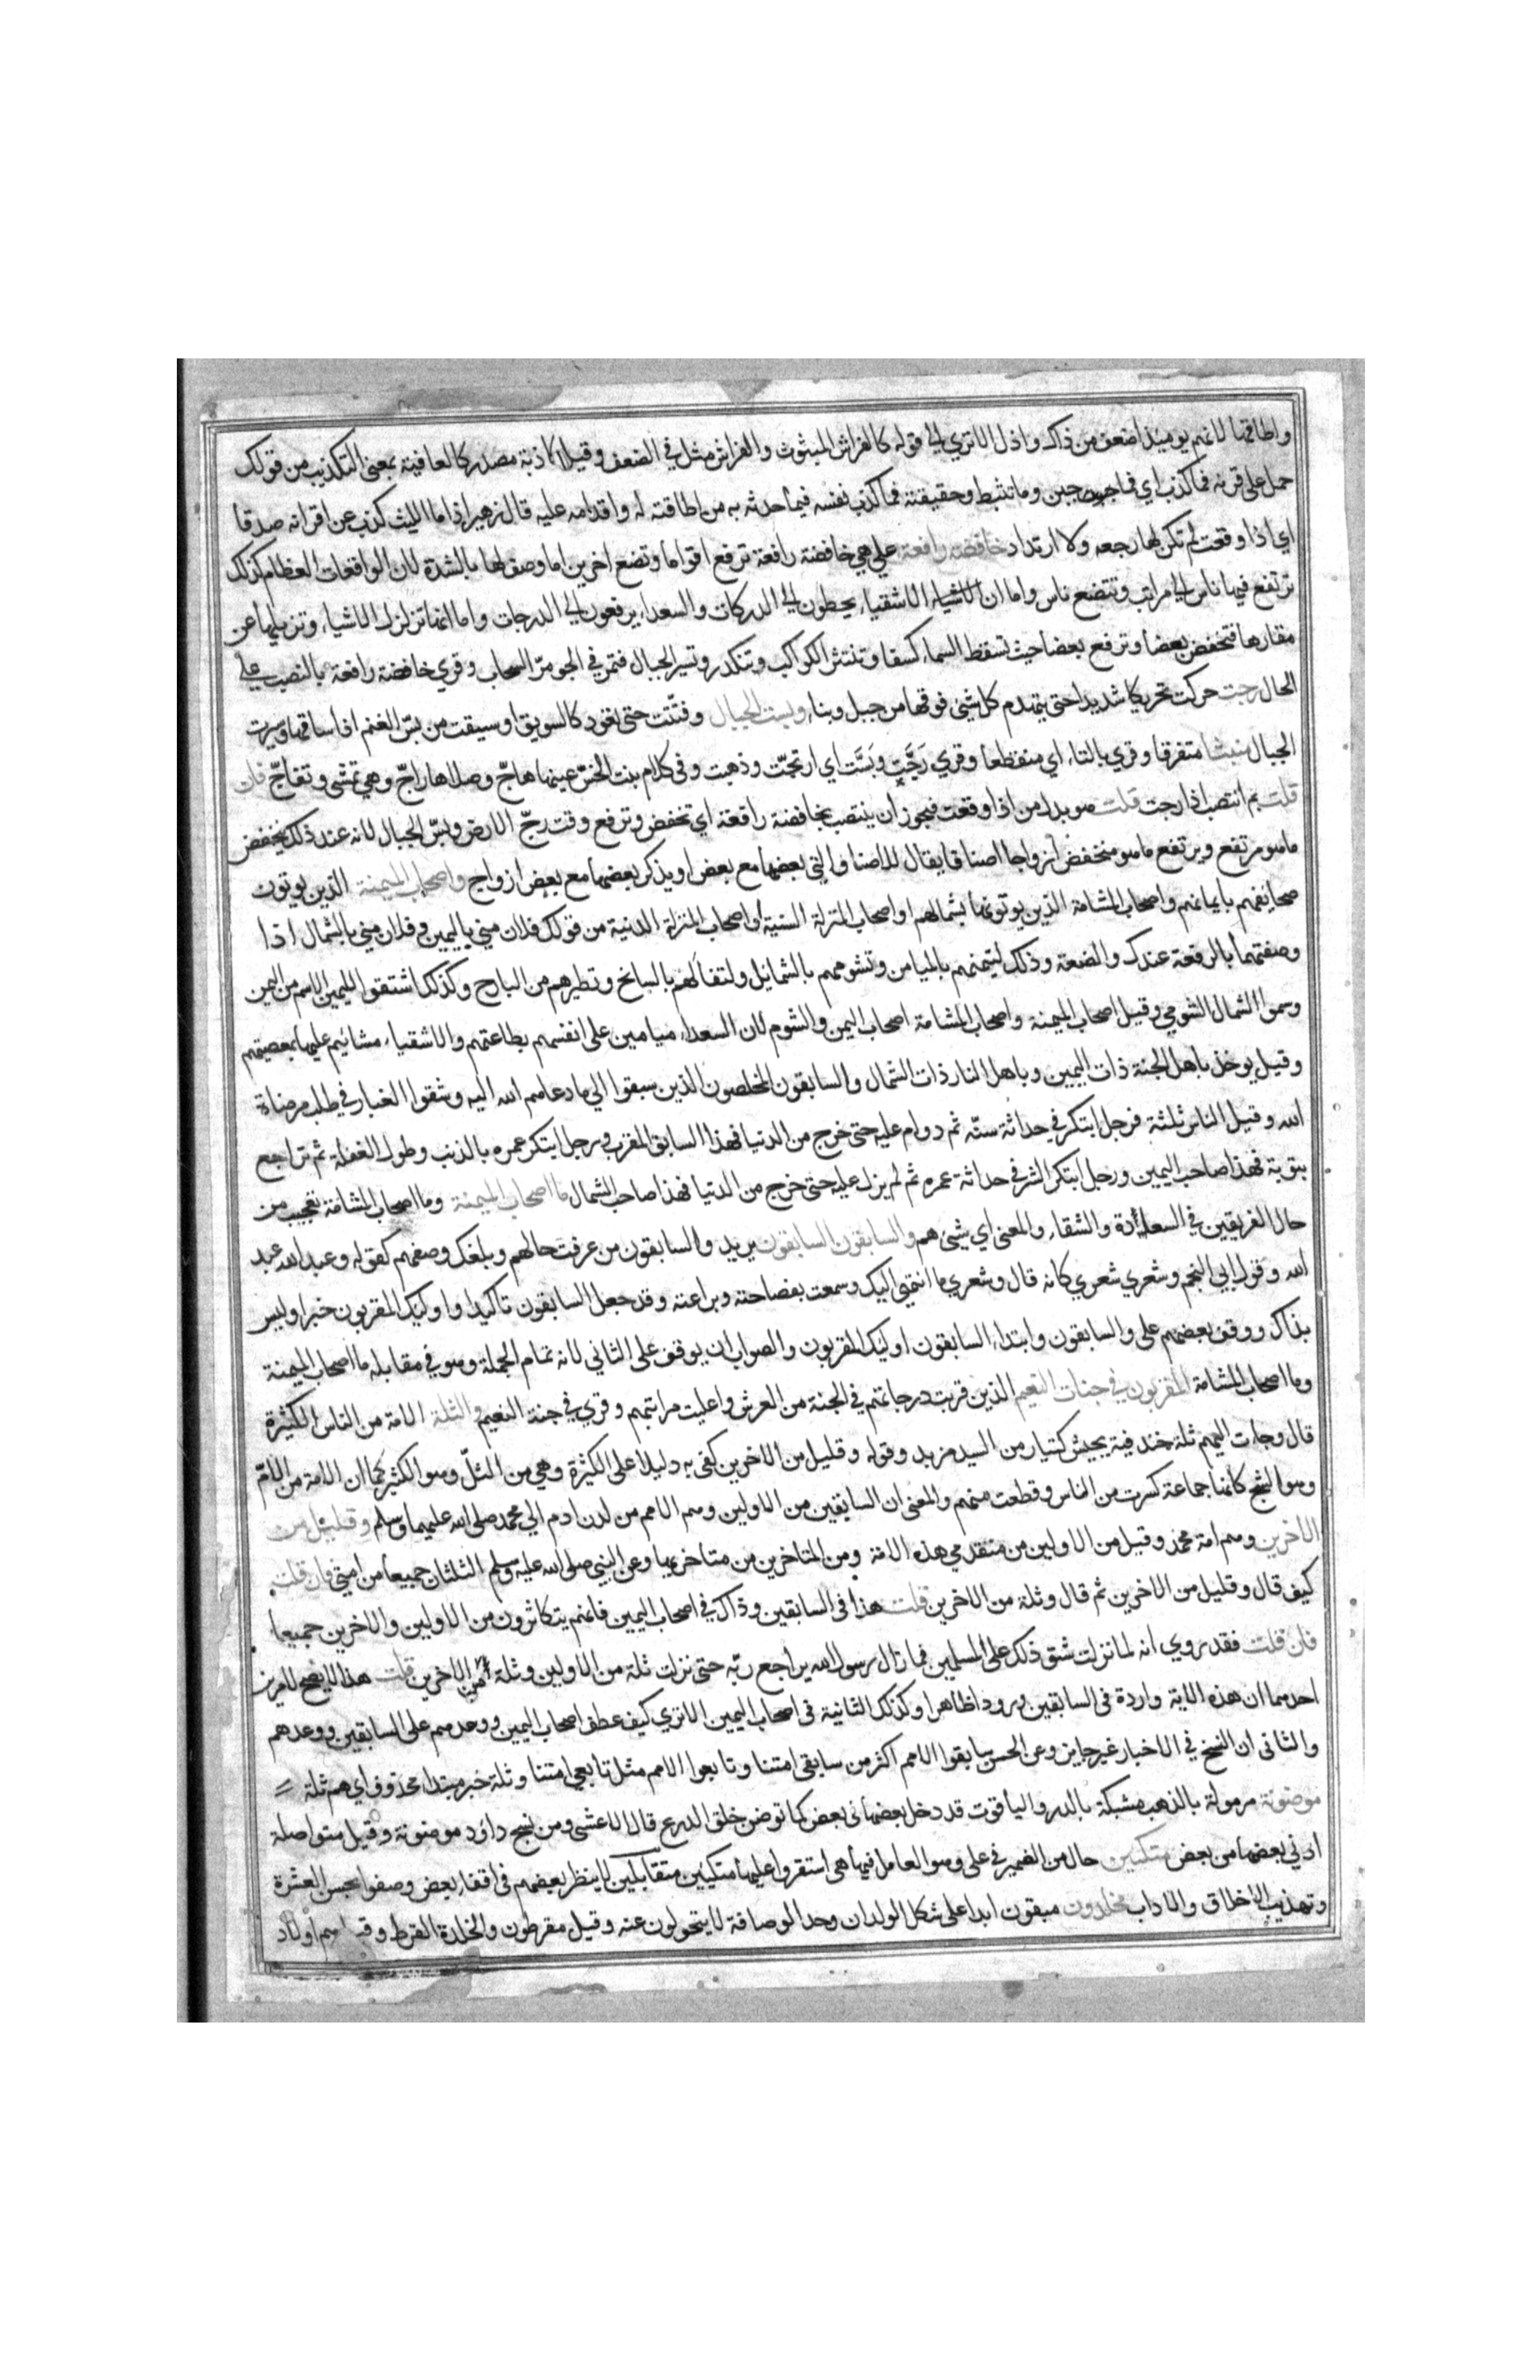 واطاقتها لانهم يومئذ اضعف من ذاك واذل الا تري الى قوله كالفراش المبثوث والفراش مثل في الضعف وقيل كاذبة مصدر كالعافية بمعنى التكذيب من قولك
حمل على قرنه فما كذب اي فما جبن وما تثبط وحقيقته فما كذب نفسه فيما حدثه به من اطاقته له واقدامه عليه قال زهير اذا ما الليث كذب عن اقرانه صدقا
اي اذا وقعت لم تكن لها رجعه ولا ارتداد خافضة رافعة على هي خافضة رافعة ترفع اقواما وتضع اخرين اما وصف لها بالشدة لان الواقعات العظام كذلك
ترتفع فيها ناس الى مراتب وتتضع ناس واما ان الاشقياء يحطون الى الدركات والسعداء يرفعون الى الدرجات واما انها تزلزل الاشياء وتزيلها عن
مقارها فتخفض بعضا وترفع بعضا حيث تسقط السماء كسفا وتنتثر الكواكب وتنكدر وتسير الجبال فتمر في الجو مر السحاب وقري خافضة رافعة بالنصب على
الحال رجت حركت تحريكا شديدا حتى يتهدم كل شيئ فوقها من جبل وبناء وبست الجبال وفتّتت حتى تعود كالسويق او سيقت من بسّ الغنم اذا ساقها وسيرت
الجبال منبثا متفرقا وقري بالتاء اي منقطعا وقري رَجَّتِ وبَسَّت اي ارتجّت وذهبت وفى كلام بنت الخسّ عينها هاجّ وصلاها راجّ وهي تمشى وتفاجّ فان
قلت بم انتصب اذا رجت قلت هو بدل من اذا وقعت فيجوز ان ينتصب بخافضة رافعة اي تخفض وترفع وقت رجّ الارض وبسّ الجبال لانه عند ذلك ينخفض
ما هو مرتفع ويرتفع ما هو منخفض ازواجا اصنافا يقال للاصناف التي بعضها مع بعض او يذكر بعضها مع بعض ازواج واصحاب الميمنة الذين يوتون
صحايفهم بايمانهم واصحاب المشامة الذين يوتونها بشمالهم او اصحاب المنزلة السنية واصحاب المنزلة الدنية من قولك فلان مني باليمين وفلان مني بالشمال اذا
وصفتهما بالرفعة عندك والضعة وذلك لتيمنهم بالميامن وتشومهم بالشمايل ولتفالهم بالسانح وتطيرهم من البارح وكذلك اشتقوا لليمين الاسم من اليمن
وسموا الشمال الشومي وقيل اصحاب الميمنة واصحاب المشامة اصحاب اليمن والشوم لان السعداء ميامين على انفسهم بطاعتهم والاشقياء مشائيم عليها بمعصيتهم
وقيل يوخذ باهل الجنة ذات اليمين وباهل النار ذات الشمال والسابقون المخلصون الذين سبقوا الي ما دعاهم الله اليه وشقوا الغبار في طلب مرضاة
الله وقيل الناس ثلثة فرجل ابتكر في حداثة سنّه ثم دوام عليه حتى خرج من الدنيا فهذا السابق المقرب ورجل ابتكر عمره بالذنب وطول الغفلة ثم تراجع
بتوبة فهذا صاحب اليمين ورجل ابتكر الشر في حداثة عمره ثم لم يزل عليه حتى خرج من الدنيا فهذا صاحب الشمال ما اصحاب الميمنة وما اصحاب المشامة تعجيب من
حال الفريقين في السعادة والشقاء والمعنى اي شيئ هم والسابقون السابقون يريد والسابقون من عرفت حالهم وبلغك وصفهم كقوله وعبد الله عبد
الله وقول ابي النجم وشعري شعري كانه قال وشعري ما انتهى اليك وسمعت بفصاحته وبراعته وقد جعل السابقون تاكيدا واوليك المقربون خبرا وليس
بذاك ووقف بعضهم على والسابقون وابتداء السابقون اوليك المقربون والصواب ان يوقف على الثاني لانه تمام الجملة وهو في مقابله ما اصحاب الميمنة
وما اصحاب المشامة المقربون في جنات النعيم الذين قربت درجاتهم في الجنة من العرش واعليت مراتبهم وقري في جنة النعيم والثلة الامة من الناس الكثيرة
قال وجات اليهم ثلة خندفية بجيش كتيار من السيد مزبد وقوله وقليل من الاخرين كفى به دليلا على الكثرة وهي من الثلّ وهو الكثير كما ان الامة من الامّ
وهو الشج كانها جماعة كسرت من الناس وقطعت منهم والمعنى ان السابقين من الاولين وهم الامم من لدن ادم الي محمد صلى الله عليهما وسلم وقليل من
الاخرين وهم امة محمد وقيل من الاولين من متقدمي هذه الامة ومن المتاخرين من متاخريها وعن النبي صلى الله عليه وسلم الثلثان جميعا من امتي فان قلت
كيف قال وقليل من الاخرين ثم قال وثلة من الاخرين قلت هذا فى السابقين وذاك في اصحاب اليمين فانهم يتكاثرون من الاولين والاخرين جميعا
فان قلت فقد روي انه لما نزلت شق ذلك على المسلمين فما زال رسول الله يراجع ربّه حتى نزلت ثلة من الاولين وثلة من الاخرين قلت هذا لا يصح لامرين
احدهما ان هذه الاية واردة فى السابقين ورودا ظاهرا وكذلك الثانية فى اصحاب اليمين الا تري كيف عطف اصحاب اليمين ووعدهم على السابقين ووعدهم
والثانى ان النسخ في الاخبار غير جايز وعن الحسن سابقوا الامم اكثر من سابقي امتنا وتابعوا الامم مثل تابعي امتنا وثلة خبر مبتدا محذوف اي هم ثلة
موضونة مرمولة بالذهب مشبكة بالدر والياقوت قد دخل بعضها فى بعض كما توضن حلق الدرع قال الاعشى ومن نسج داود موضونة وقيل متواصلة
ادني بعضها من بعض متكئين حال من الضمير في على وهو العامل فيها اى استقروا عليها متكئين متقابلين لا ينظر بعضهم فى اقفاء بعض وصفوا بحسن العشرة
وتهذيب الاخلاق والاداب مخلدون مبقون ابدا على شكل الولدان وحد الوصافة لا يتحولون عنه وقيل مقرطون والخلدة القرط هم اولاد